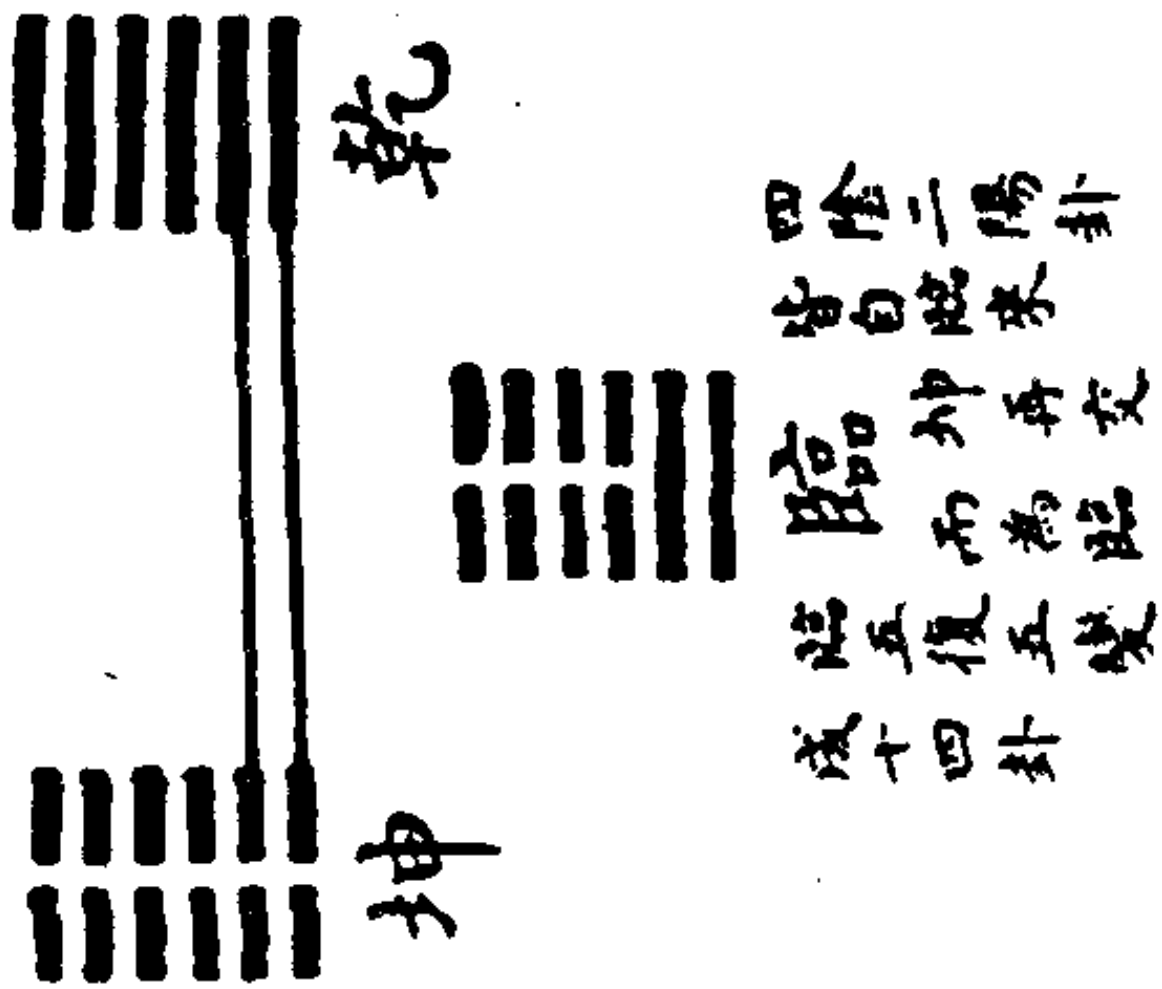 乾
坤
臨
四陰二陽卦
皆自臨來
坤再交
而為臨
臨五復五變
成十四卦